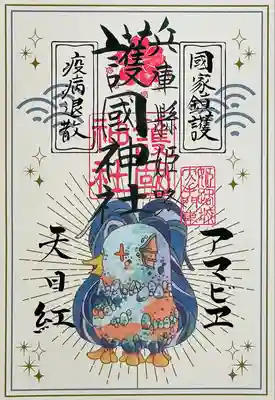 國家鎮護
兵庫縣姫路
護國神社
疫病退散
アマビヱ
天日紅